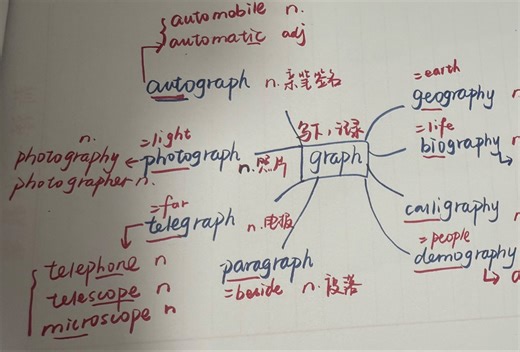 automobile n.
automatic adj
autograph n. 亲笔签名
=earth
geography
写下,记录
graph
=life
biography
n.
=light
photography
photograph n.照片
photographer n.
calligraphy
=far
telegraph n.电报
=people
demography
telephone n
paragraph
telescope n
=beside n.段落
microscope n